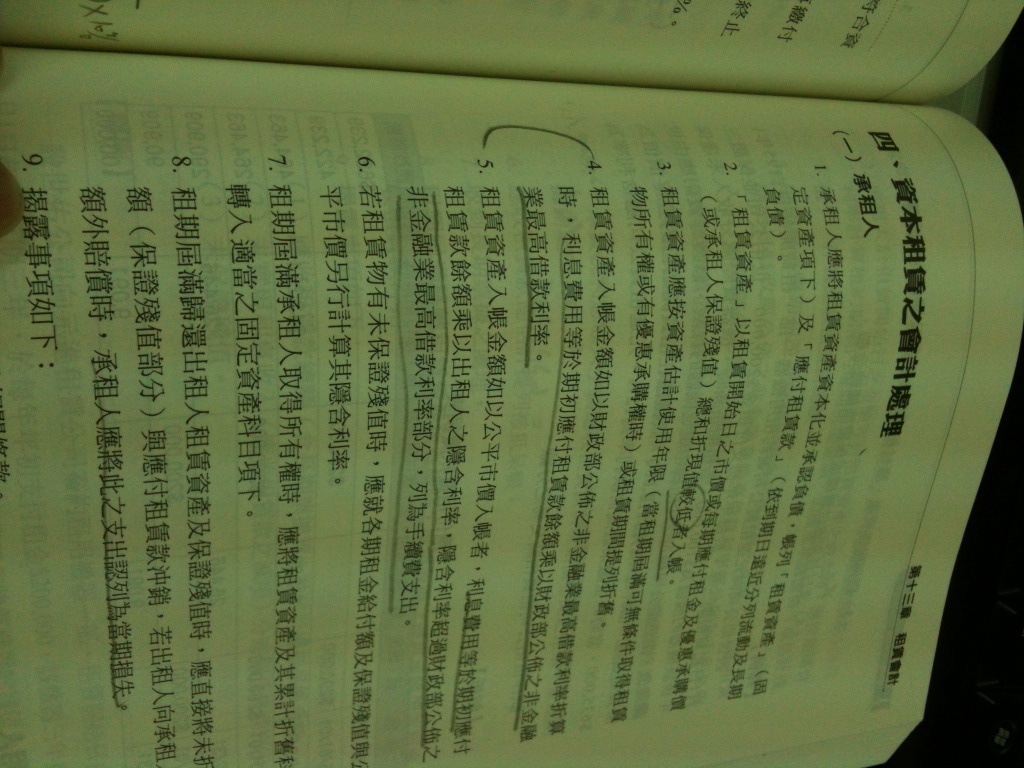 第十三章 租賃會計
四、資本租賃之會計處理
(一) 承租人
1. 承租人應將租賃資產資本化並承認負債，帳列「租賃資產」(固
定資產項下) 及「應付租賃款」(依到期日遠近分列流動及長期
負債)。
2. 「租賃資產」以租賃開始日之市價或每期應付租金及優惠承購價
(或承租人保證殘值) 總和折現值較低者入帳。
3. 租賃資產應按資產估計使用年限 (當租期屆滿可無條件取得租賃
物所有權或有優惠承購權時) 或租賃期間提列折舊。
4. 租賃資產入帳金額如以財政部公佈之非金融業最高借款利率折算
時，利息費用等於期初應付租賃款餘額乘以財政部公佈之非金融
業最高借款利率。
5. 租賃資產入帳金額如以公平市價入帳者，利息費用等於期初應付
租賃款餘額乘以出租人之隱含利率，隱含利率超過財政部公佈之
非金融業最高借款利率部分，列為手續費支出。
6. 若租賃物有未保證殘值時，應就各期租金給付額及保證殘值與公
平市價另行計算其隱含利率。
7. 租期屆滿承租人取得所有權時，應將租賃資產及其累計折舊科
轉入適當之固定資產科目項下。
8. 租期屆滿歸還出租人租賃資產及保證殘值時，應直接將未折
額 (保證殘值部分) 與應付租賃款沖銷，若出租人向承租
額外賠償時，承租人應將此之支出認列為當期損失。
9. 揭露事項如下：
符合資
繳付
終止
%。